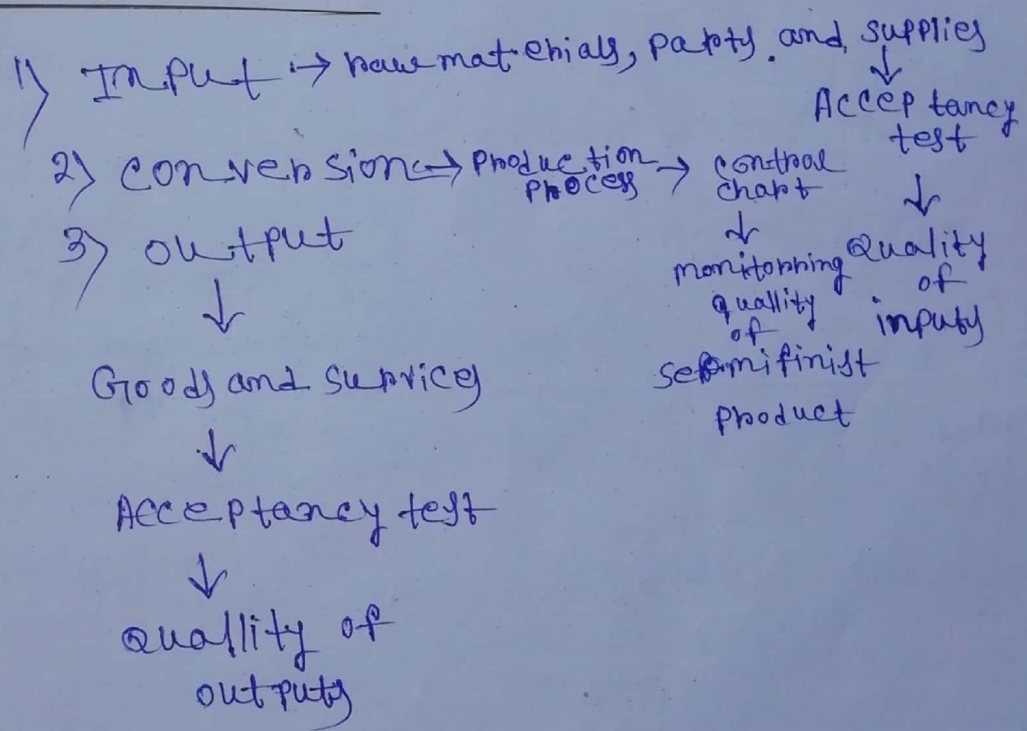 1) Input → raw materials, parts. and supplies
↓
Acceptancy
test
↓
Quality
of
inputs
2) conversion → production
process → control
chart
↓
monitorring
quallity
of
semifinist
product
3) output
↓
Goods and survices
↓
Acceptancy test
↓
Quallity of
outputs